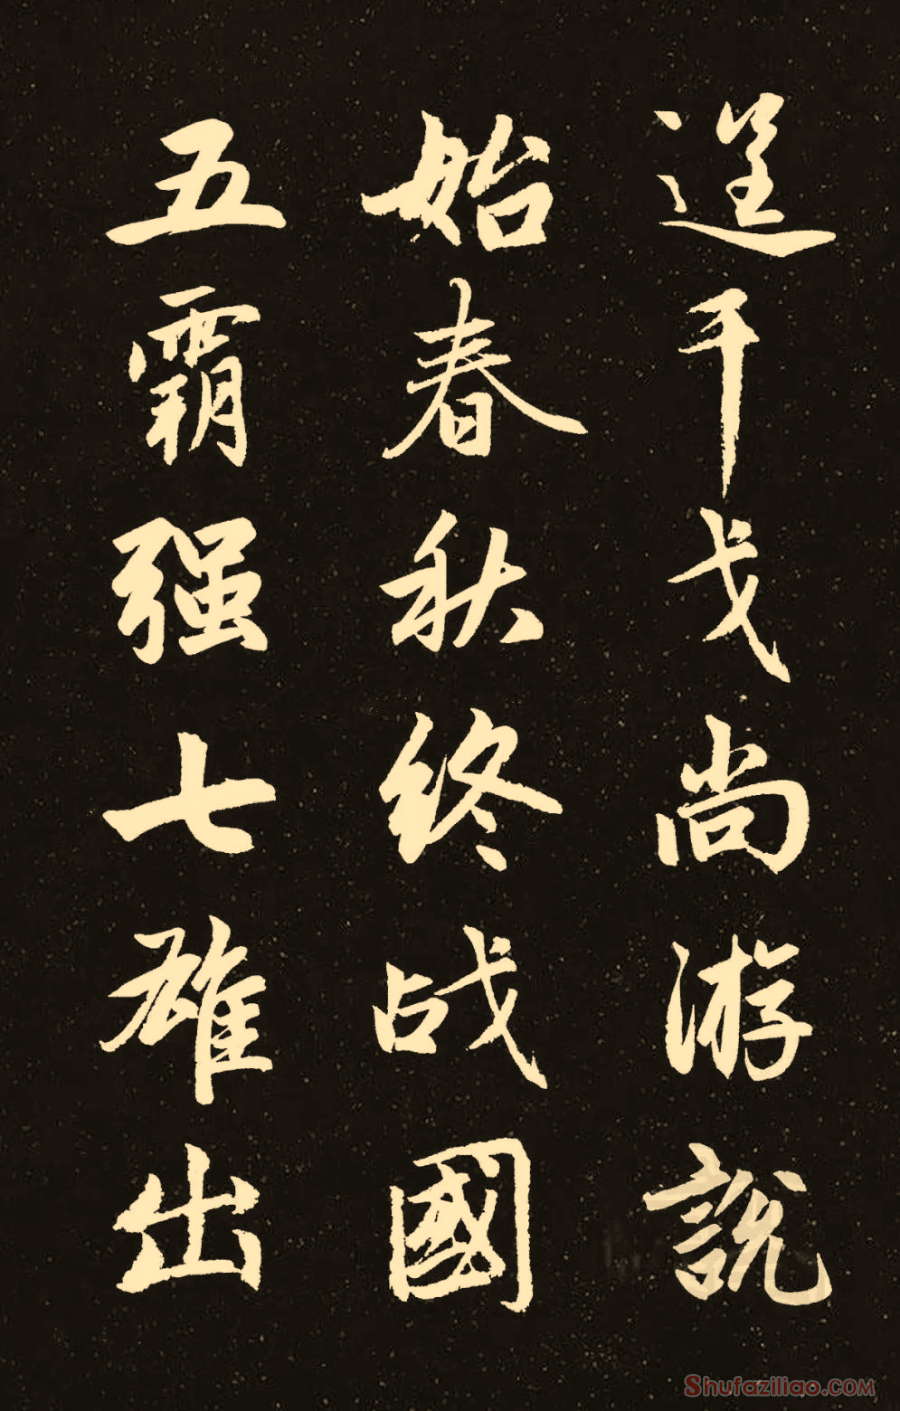 逞干戈尚游説
始春秋终战國
五霸强七雄出
Shufaziliao.com